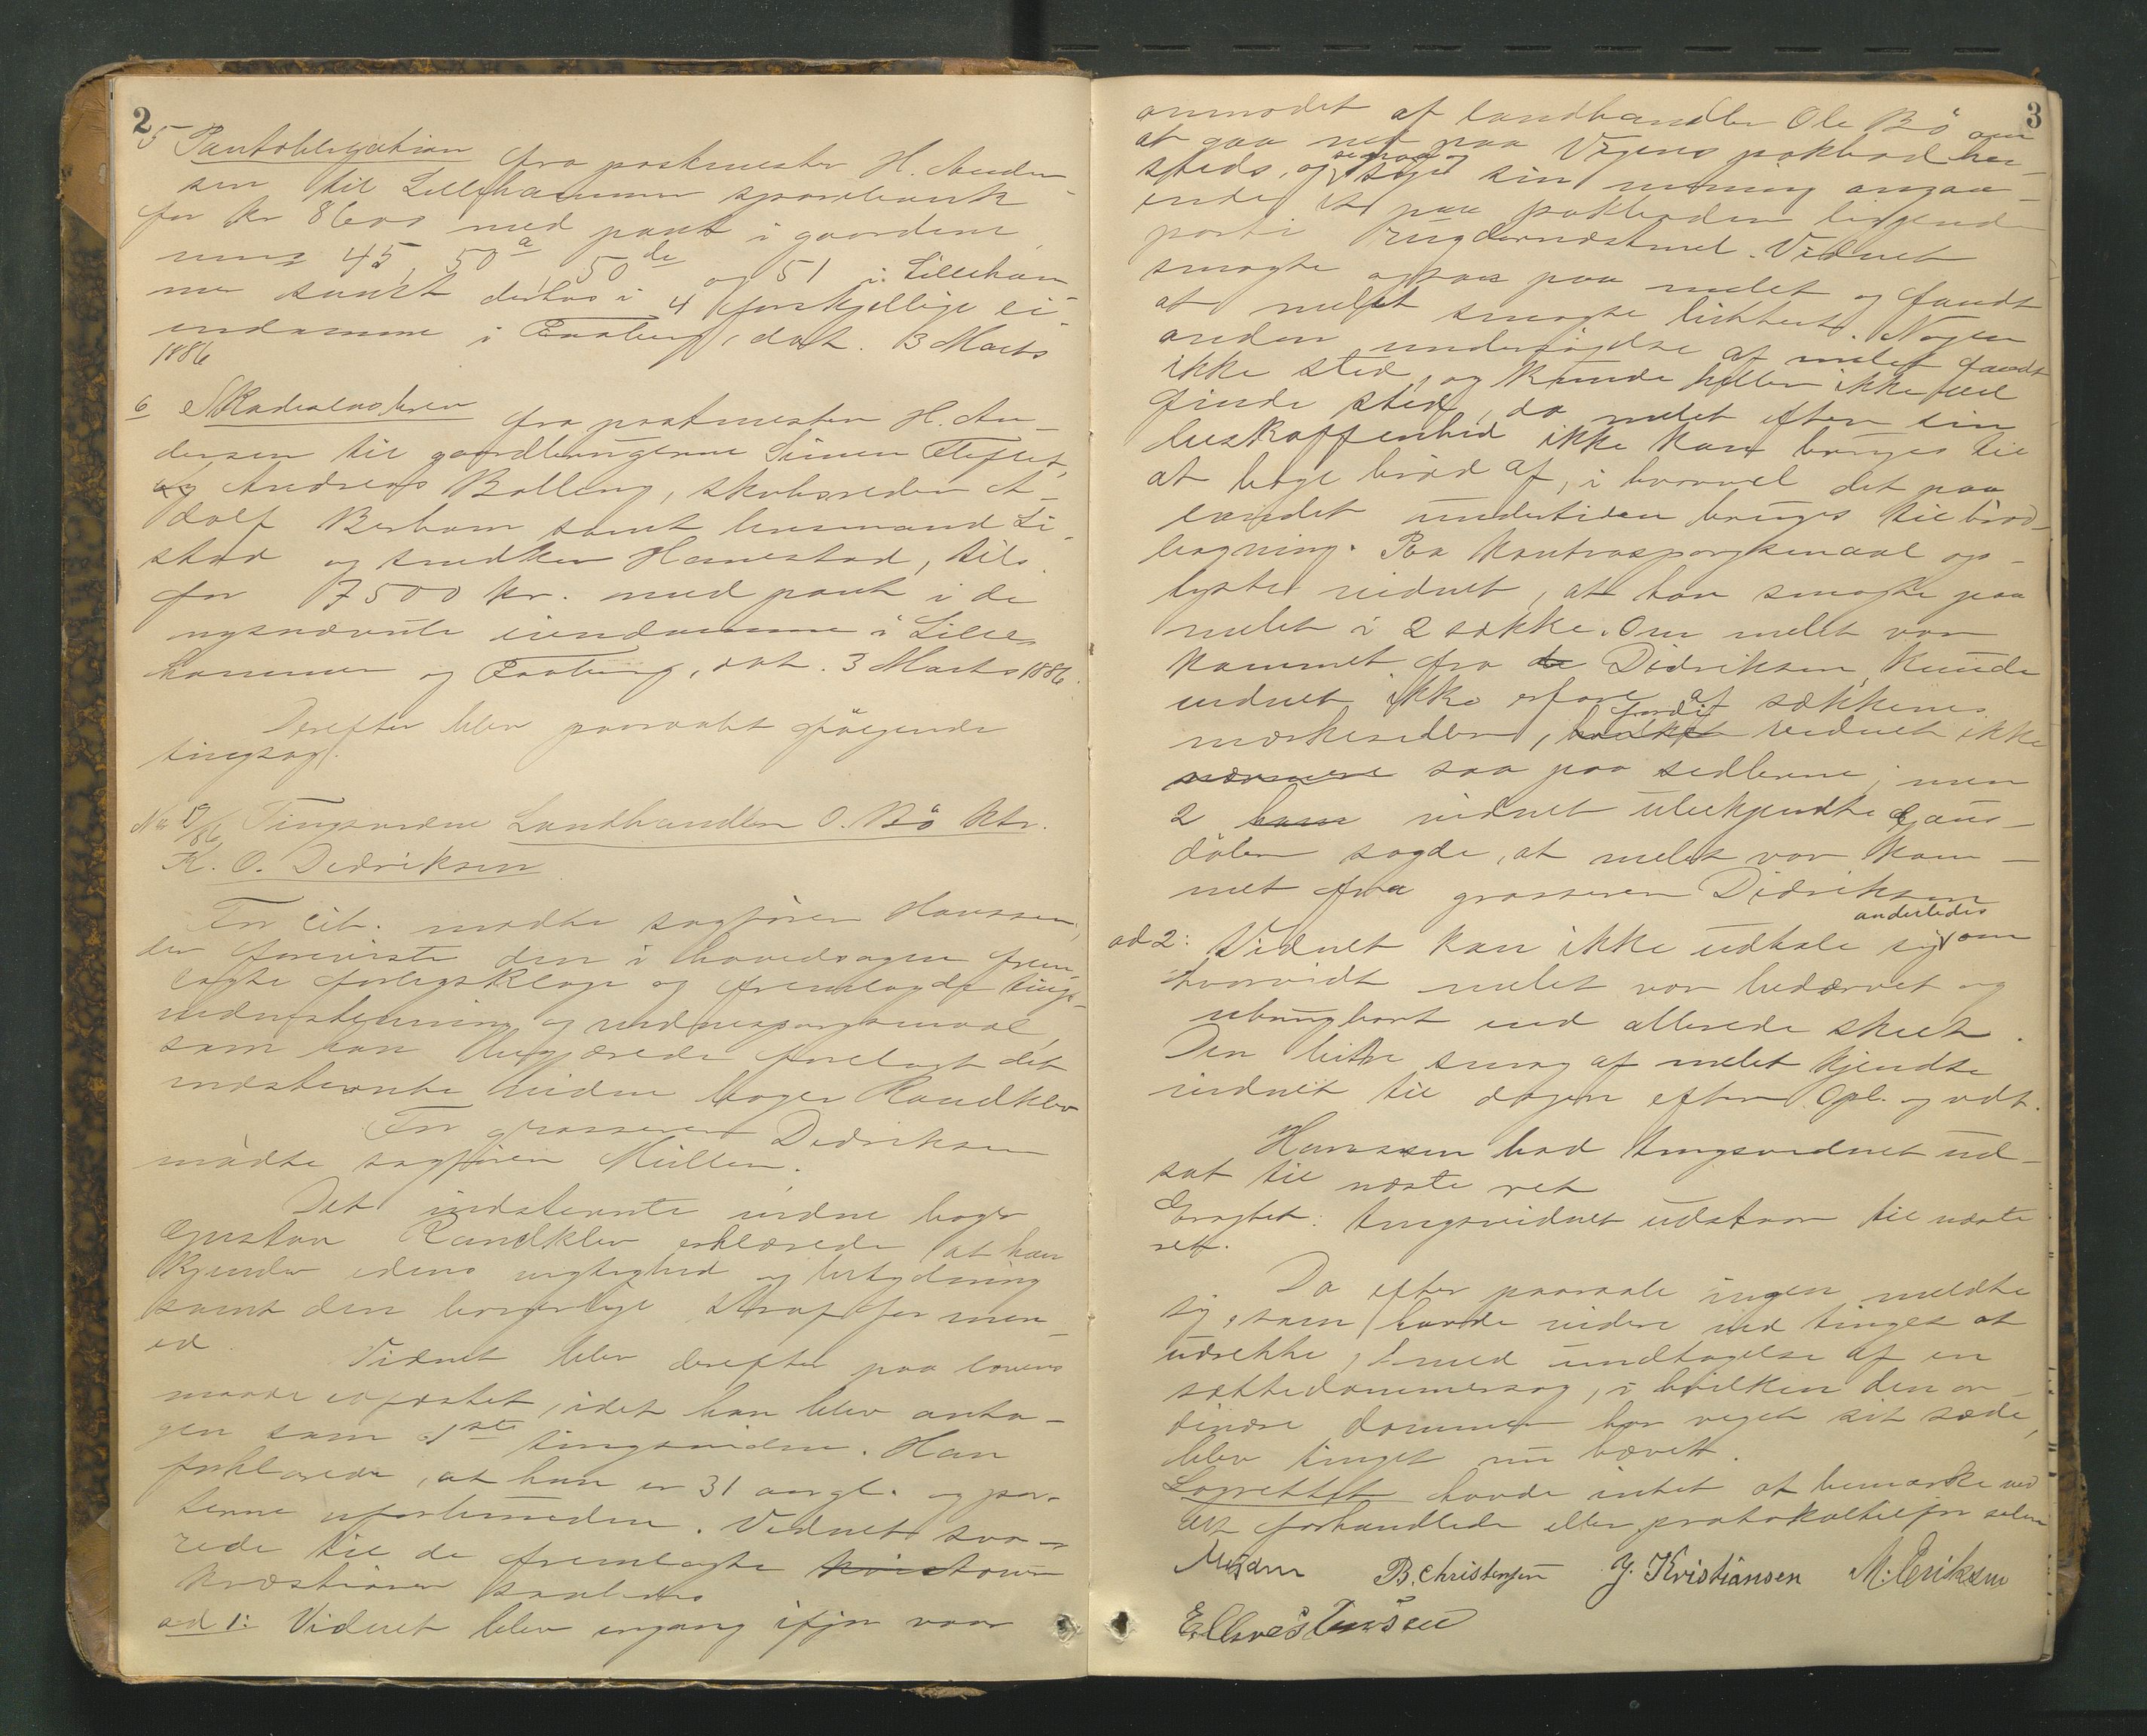 2
5 Pantobligation fra postmester H. Ander-
sen til Lillehammer sparebank
for Kr 8600 med pant i gaardene
45, 50a, 50de og 51 i Lilleham-
mer samt derhos i 4 forskjellige ei-
endomme i Faaberg, dat. 3 Marts
1886
6 Skadesløsbrev fra postmester H. An-
dersen til gaardbrugerne Simen Flefset,
og Andreas Balberg, skolereder A-
dolf Berhom samt lensmand Li-
stad og snedker Hamestad, tils.
for 7500 kr. med pant i de
nysnævnte eiendomme i Lille-
hammer og Faaberg, dat. 3 Marts 1886.
Derefter blev paaraabt følgende
tingsag.
No 19/86 Tingsvidne Landhandler O. Bø ktr.
K. O. Dedriksen
For cit. mødte sagfører Hanssen,
der foreviste den i hovedsagen frem-
lagte forligsklage og fremlagde tings-
vidnestevning og vidnespørgsmaal,
som han begjærede forelagt det
indstevnte vidne bager Randklev
For grosserer Dedriksen
mødte sagfører Müller.
Det indstevnte vidne bager
Gustav Randklev erklærede at han
kjender edens vigtighed og betydning
samt den borgerlige straf for men-
ed. Vidnet blev derefter paa lovens
maade edfæstet, idet han blev anta-
gen som 1ste tingsvidne. Han
forklarede, at han er 31 aar gl. og par-
terne uforbunden. Vidnet sva-
rede til de fremlagte
kvæstioner saaledes
ad 1: Vidnet blev engang ifjor vaar
3
anmodet af landhandler Ole Bø om
at gaa ned paa Vegens pakbod her-
steds, og smage og sige sin mening angaa-
ende et paa pakboden liggende
parti rugdernæstmel. Vidnet
smagte ogsaa paa melet og fandt
at melet smagte bittert. Nogen
anden undersøgelse af melet fandt
ikke sted, og kunde heller ikke vel
finde sted, da melet efter sin
beskaffenhed ikke kan bruges til
at bage brød af, i hvorvel det paa
landet undertiden bruges til brød-
bagning. Paa kontraspørgsmaal op-
lyste vidnet, at han smagte paa
melet i 2 sække. Om melet var
kommet fra de Didriksen, kunde
vidnet ikke erfare af sækkenes
mærkesedler, fordi vidnet ikke
nærmere saa paa sedlerne; men
2 vidnet ubekjendte Gaus-
døler sagde, at melet var kom-
met fra grosserer Didriksen
ad 2: Vidnet kan ikke udtale sig anderledes om
hvorvidt melet var bedærvet og
ubrugbart end allerede skeet.
Den bitre smag af melet kjendte
vidnet til dagen efter. Opl. og vedt.
Hanssen bad tingsvidnet ud-
sat til næste ret
Eragtet: tingsvidnet udstaar til næste
ret.
Da efter paaraab ingen meldte
sig, som havde videre ved tinget at
udrette, med undtagelse af en
sættedommersag, i hvilken den or-
dinære dommer har veget sit sæde,
blev tinget nu hævet.
Lagrettet havde intet at bemærke ved
det forhandlede eller protokoltilførselen
B. Christensen J. Kristiansen M. Eriksen